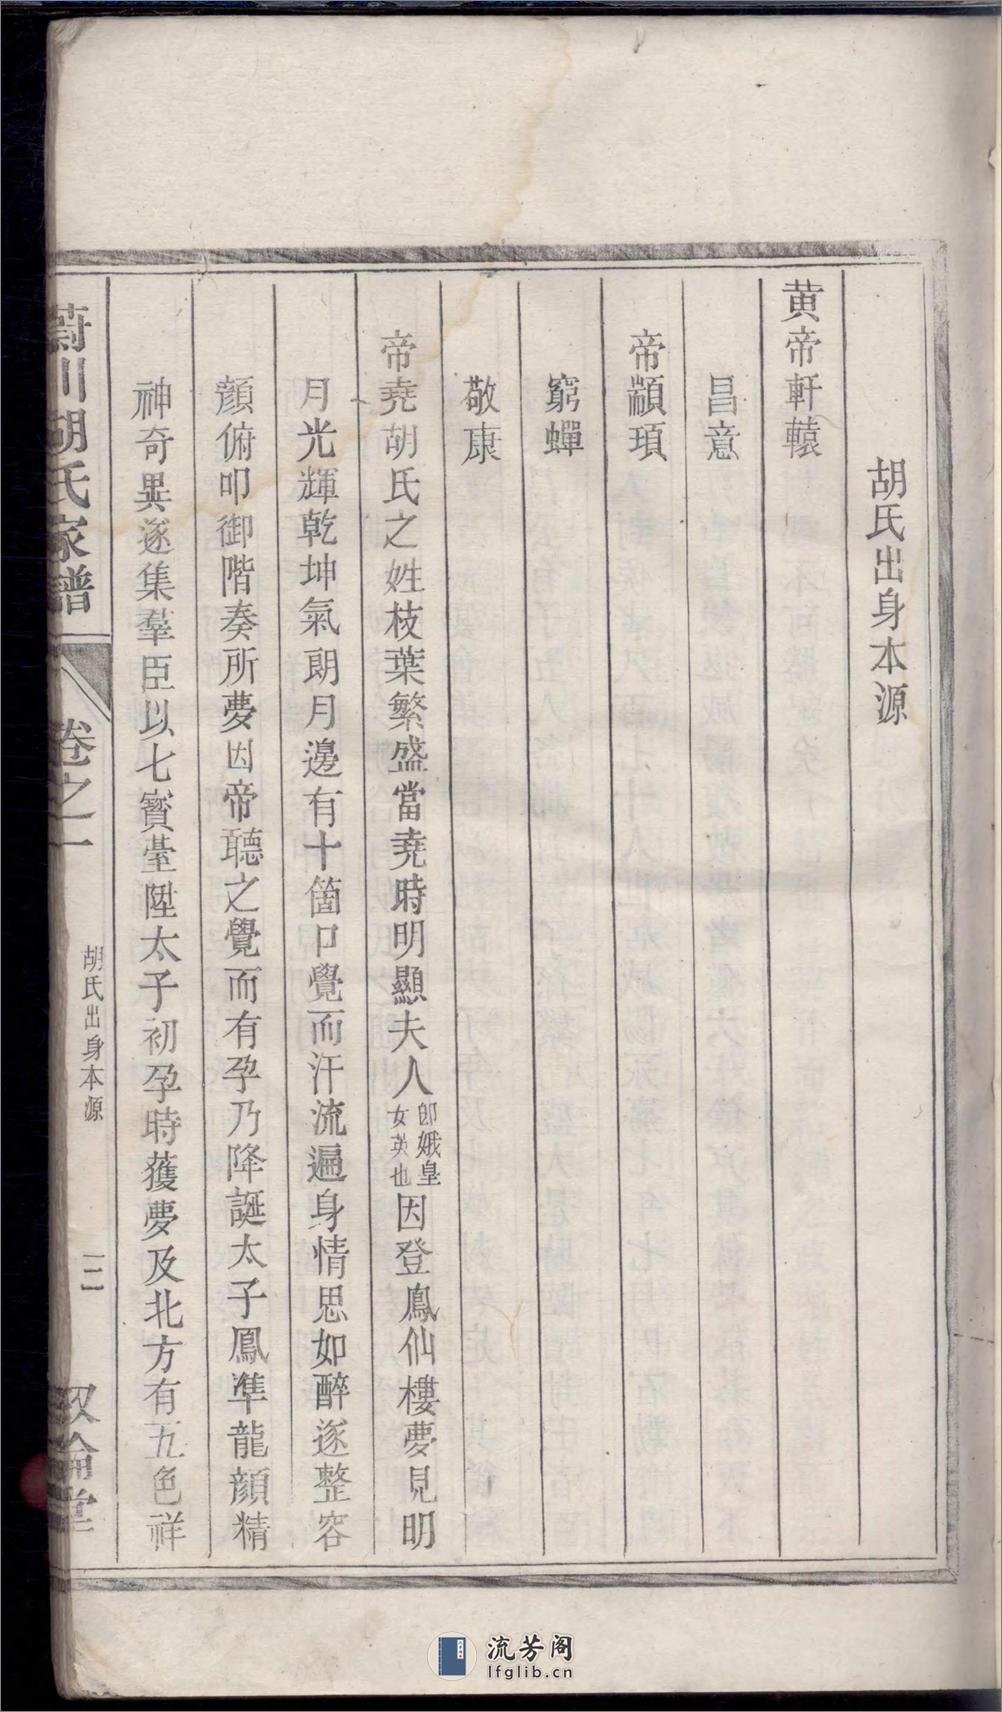 胡氏出身本源
黃帝軒轅
昌意
帝顓頊
窮蟬
敬康
帝堯胡氏之姓枝葉繁盛當堯時明顯夫人即娥皇女英也因登鳳仙樓夢見明
月光輝乾坤氣朗月邊有十箇口覺而汗流遍身情思如醉逐整容
顏俯叩御階奏所夢因帝聽之覺而有孕乃降誕太子鳳準龍顏精
神奇異逐集羣臣以七寶臺陞太子初孕時獲夢及北方有五色祥
蔚川胡氏家譜
卷之一
胡氏出身本源
二
敘倫堂
流芳阁
lfglib.cn